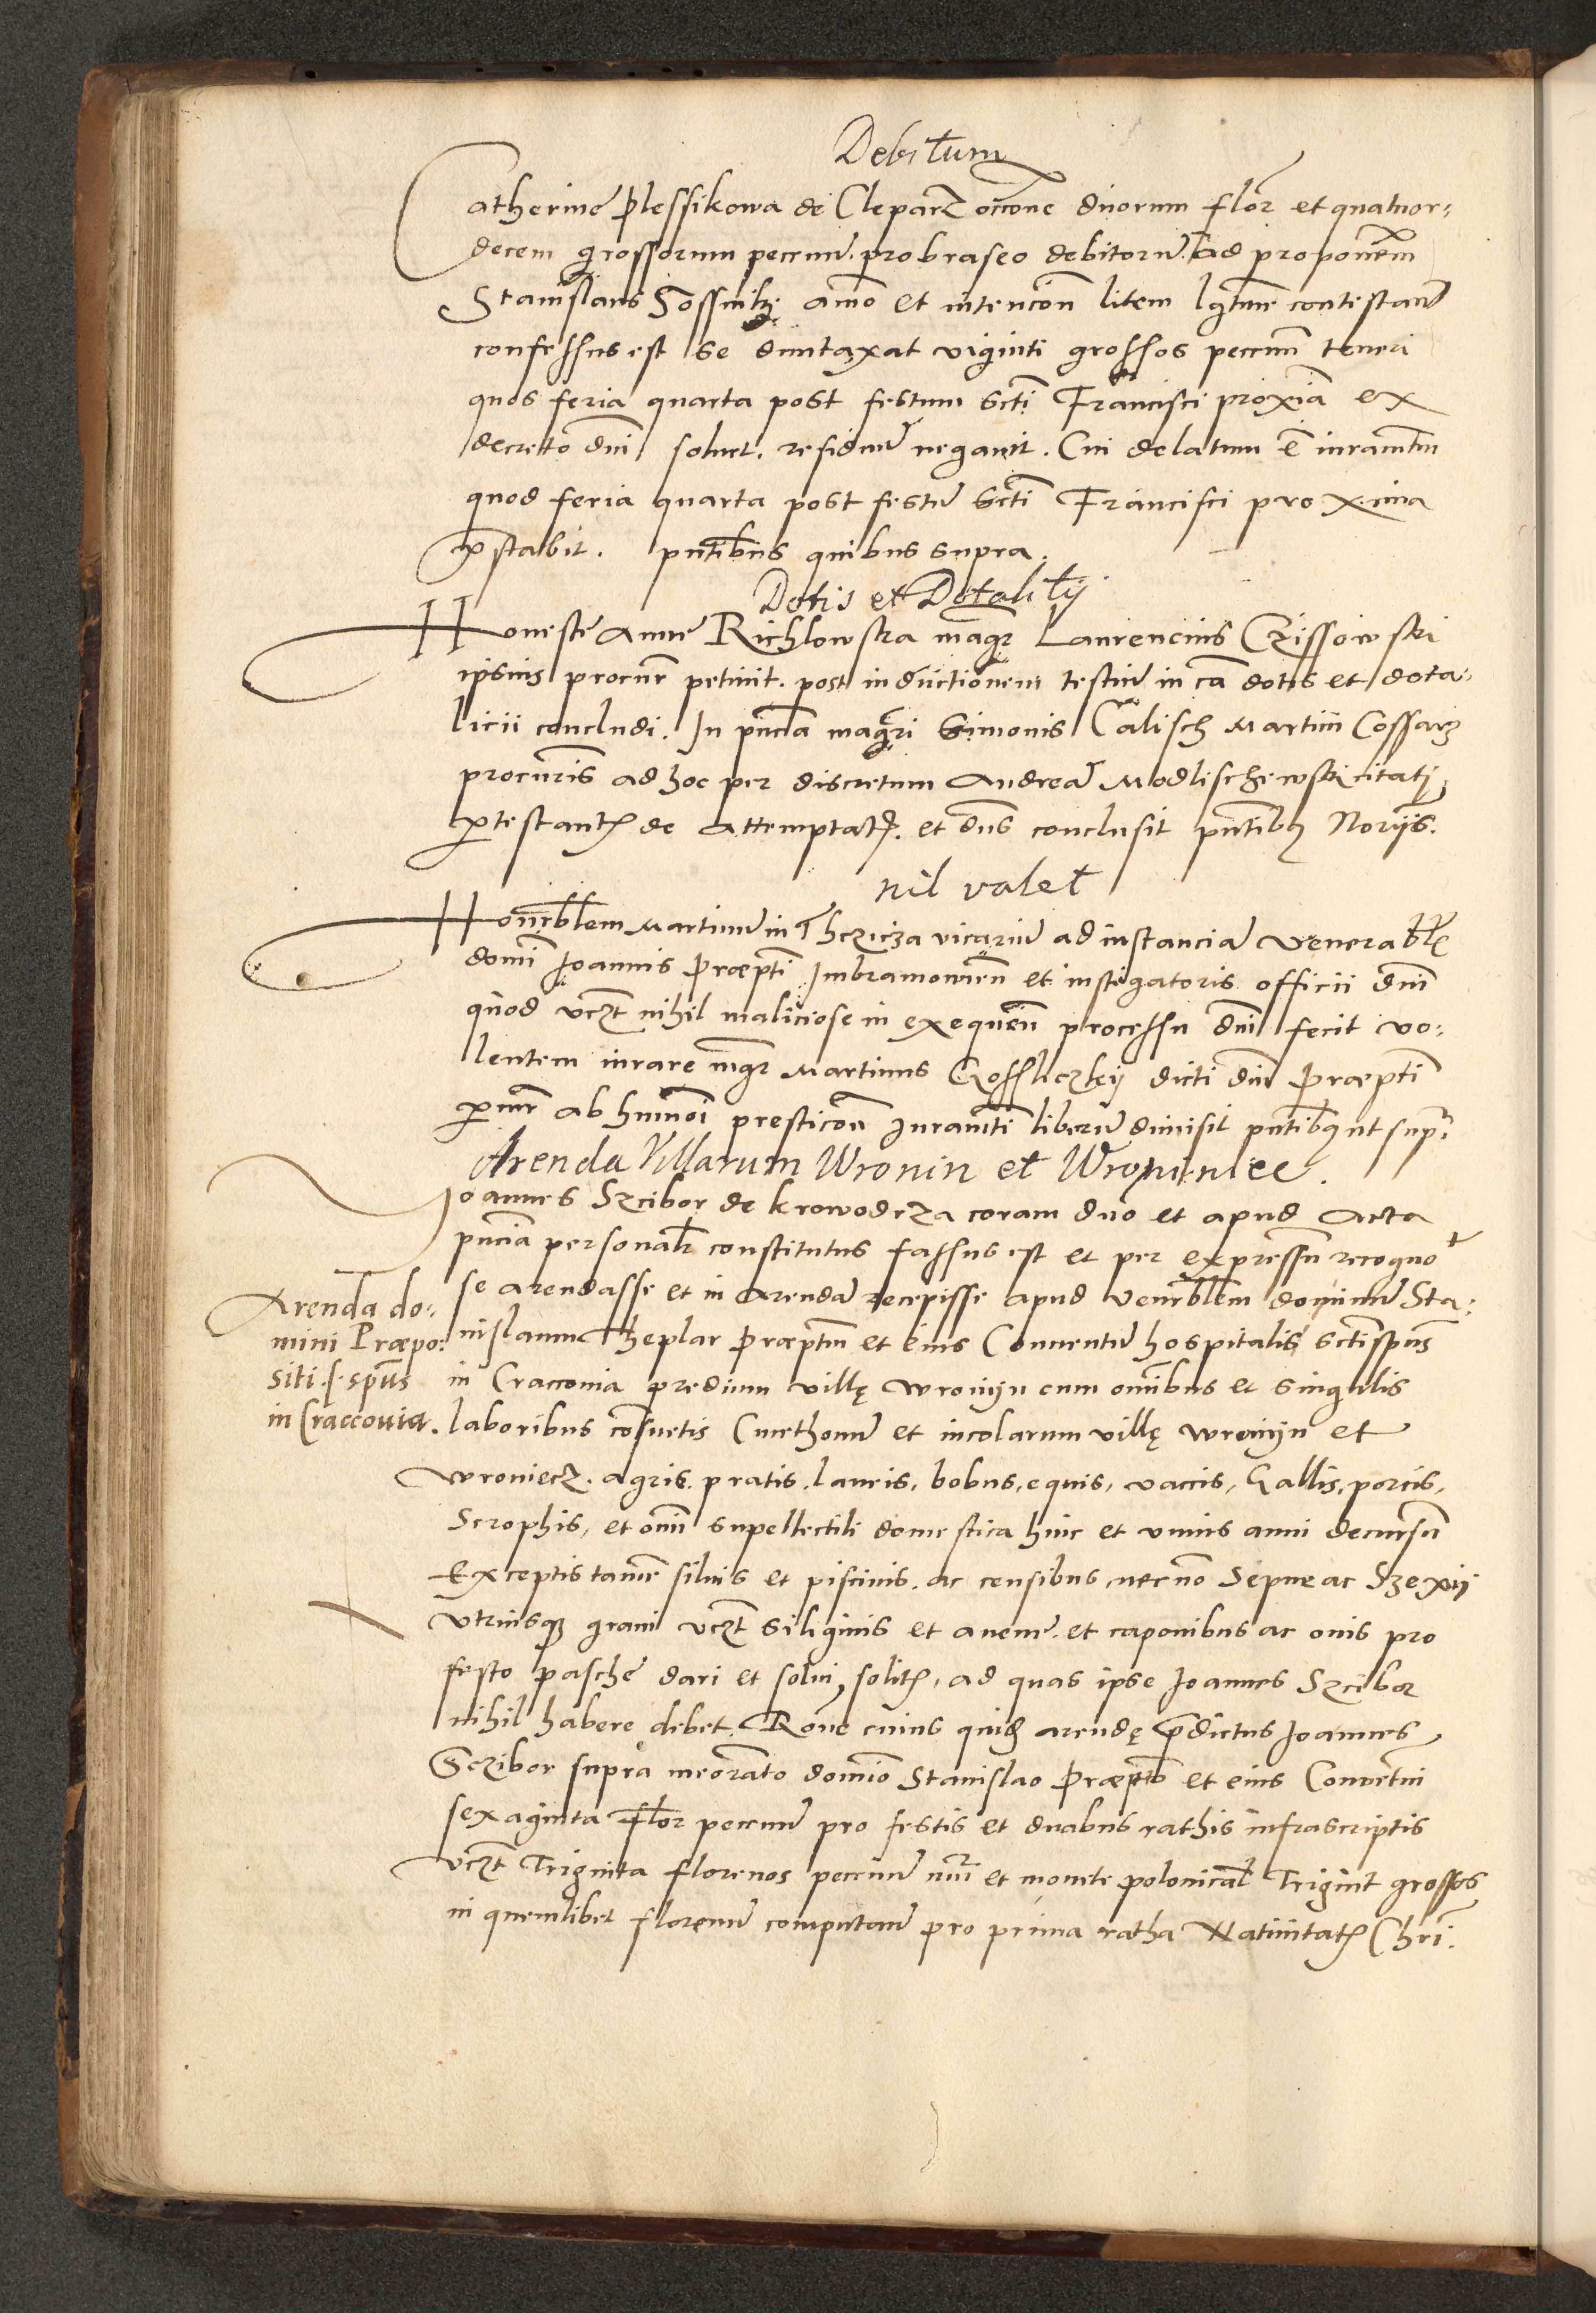 Debitum
Catherine Plessikowa de Cleparz occone duorum flor et quatuor-
decem grossorum pecun. pro braseo debitorum. ad proponem
Stanislaus Sossnik animo et intencion litem lgtime contestand
confessus est se duntaxat viginti grossos pecun teneri
quos feria quarta post festum scti Francisci proxia ex
decreto dni solvet. residuum negavit. Cui delatum e iuramtum
quod feria quarta post festum scti Francisci proxima
pstabit. pntibus quibus supra.
Dotis et Dotalitij
Honeste Anne Richlowska magr Laurencius Czissowski
ipsius procur petiuit. post inductionem testium in ca dotis et dota-
licii concludi. In pncia magri Simonis Calisch Martini Cossarz
procuris ad hoc per discretum Andream Modlischewski citati
ptestant de attemptat. et dns conclusit pntibus Norijs.
nil valet
Honorblem Martinum in Thczicza vicarium ad instanciam Venerabl
domi Joannis Præpti Imbramowicen et instigatoris officii dni
quod vczt nihil maliciose in exequen processu dni fecit vo-
lentem iurare mgr Martinus Gosliczkij dicti dni Præpti
pcur ab huiusmoi presticon Juramti liberum dimisit pntibus ut supr.
Arenda Villarum Wronin et Wroniniec.
Joannes Sczibor de krowodrza coram dno et apud acta
pncia personalr constitutus fassus est et per expressum recognot
se arendasse et in arendam recepisse apud Venerblem dominum Sta-
nislaum Theplar Præptum et eius Conventum hospitalis sctispus
in Cracovia predium villę wronijn cum omibus et singulis
laboribus cosuetis Cmethonum et incolarum villę wronijn et
wroniecz. agris. pratis. laneis, bobus, equis, vaccis, Gallis, porcis,
Scrophis, et omni supellectili domestica hinc et vnius anni decursum
Exceptis tamen siluis et piscinis. ac censibus, necno Sepne ac Szexij
vtriusque grani vczt siliginis et avene. et caponibus ac ouis pro
festo pasche dari et solui solit, ad quas ipse Joannes Sczibor
nihil habere debet. Rone cuius quid arendę pdictus Joannes
Sczibor supra meorato domino Stanislao Præpto et eius Conventui
sexaginta flor pecun pro festis et duabus rathis infrascriptis
vczt Triginta florenos pecun nui et monete polonical Trigint grossos
in quemlibet florenum computand pro prima ratha Natiuitat Chri.
Arenda do-
mini Præpo-
siti S. spus
in Craccovia.